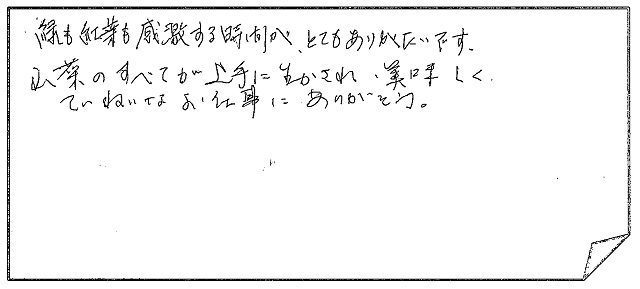 緑も紅葉も感激する時間が、とてもありがたいです。
山菜のすべてが上手に生かされ、美味しく
ていねいなお仕事にありがとう。